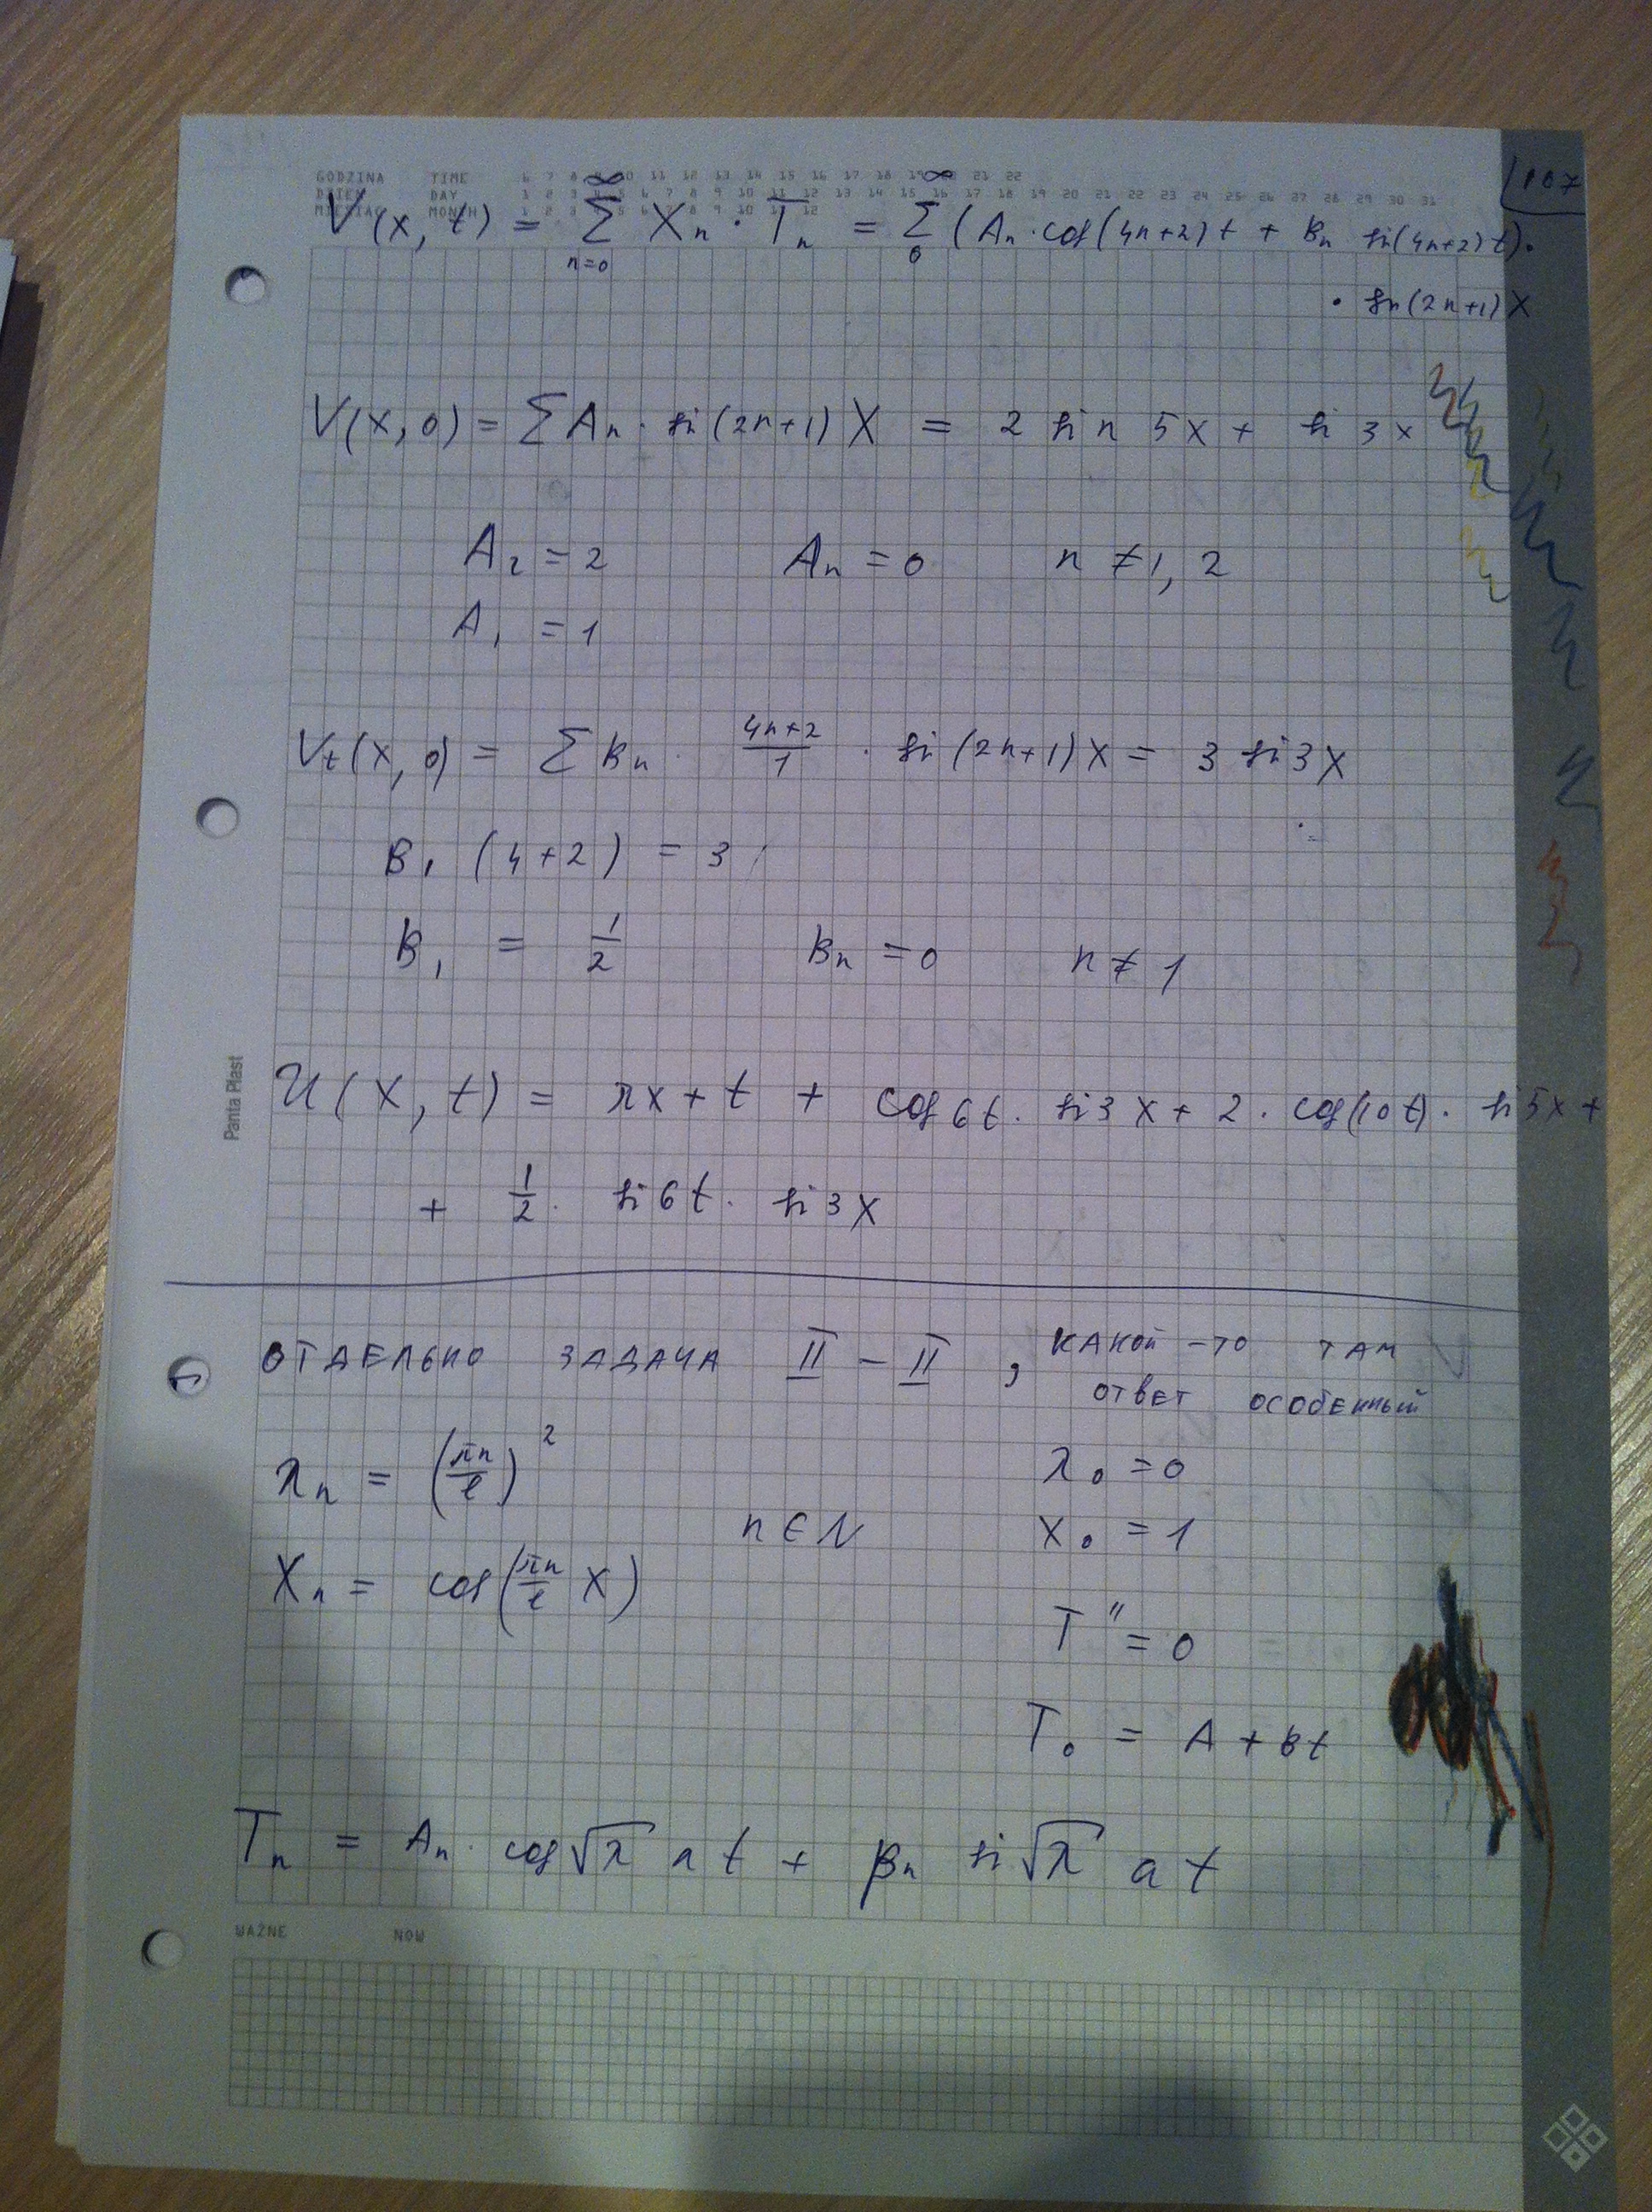 GODZINA TIME 6 7 8 9 10 11 12 13 14 15 16 17 18 19 21 22
DZIEŃ DAY 1 2 3 4 5 6 7 8 9 10 11 12 13 14 15 16 17 18 19 20 21 22 23 24 25 26 27 28 29 30 31
MIESIĄC MONTH 1 2 3 5 6 7 8 9 10 11 12
107
V(x, t) = ∞∑n=0 Xn · Tn = ∞∑0 (An · cos(4n+2)t + Bn sin(4n+2)t) ·
· sin(2n+1)X
V(x, 0) = ∑ An · sin(2n+1)X = 2 sin 5x + sin 3x
A2 = 2 An = 0 n ≠ 1, 2
A1 = 1
Vt(x, 0) = ∑ Bn · (4n+2)/1 · sin(2n+1)X = 3 sin 3X
B1 (4+2) = 3
B1 = 1/2 Bn = 0 n ≠ 1
U(x, t) = πx + t + cos 6t · sin 3x + 2 · cos(10t) · sin 5x +
+ 1/2 · sin 6t · sin 3x
ОТДЕЛЬНО ЗАДАЧА II – II , КАКОЙ-ТО ТАМ
ОТВЕТ ОСОБЕННЫЙ
λn = (πn/l)² λ0 = 0
n ∈ N X0 = 1
Xn = cos(πn/l X)
T'' = 0
T0 = A + Bt
Tn = An · cos √λ a t + Bn sin √λ a t
WAŻNE NOW
Panta Plast